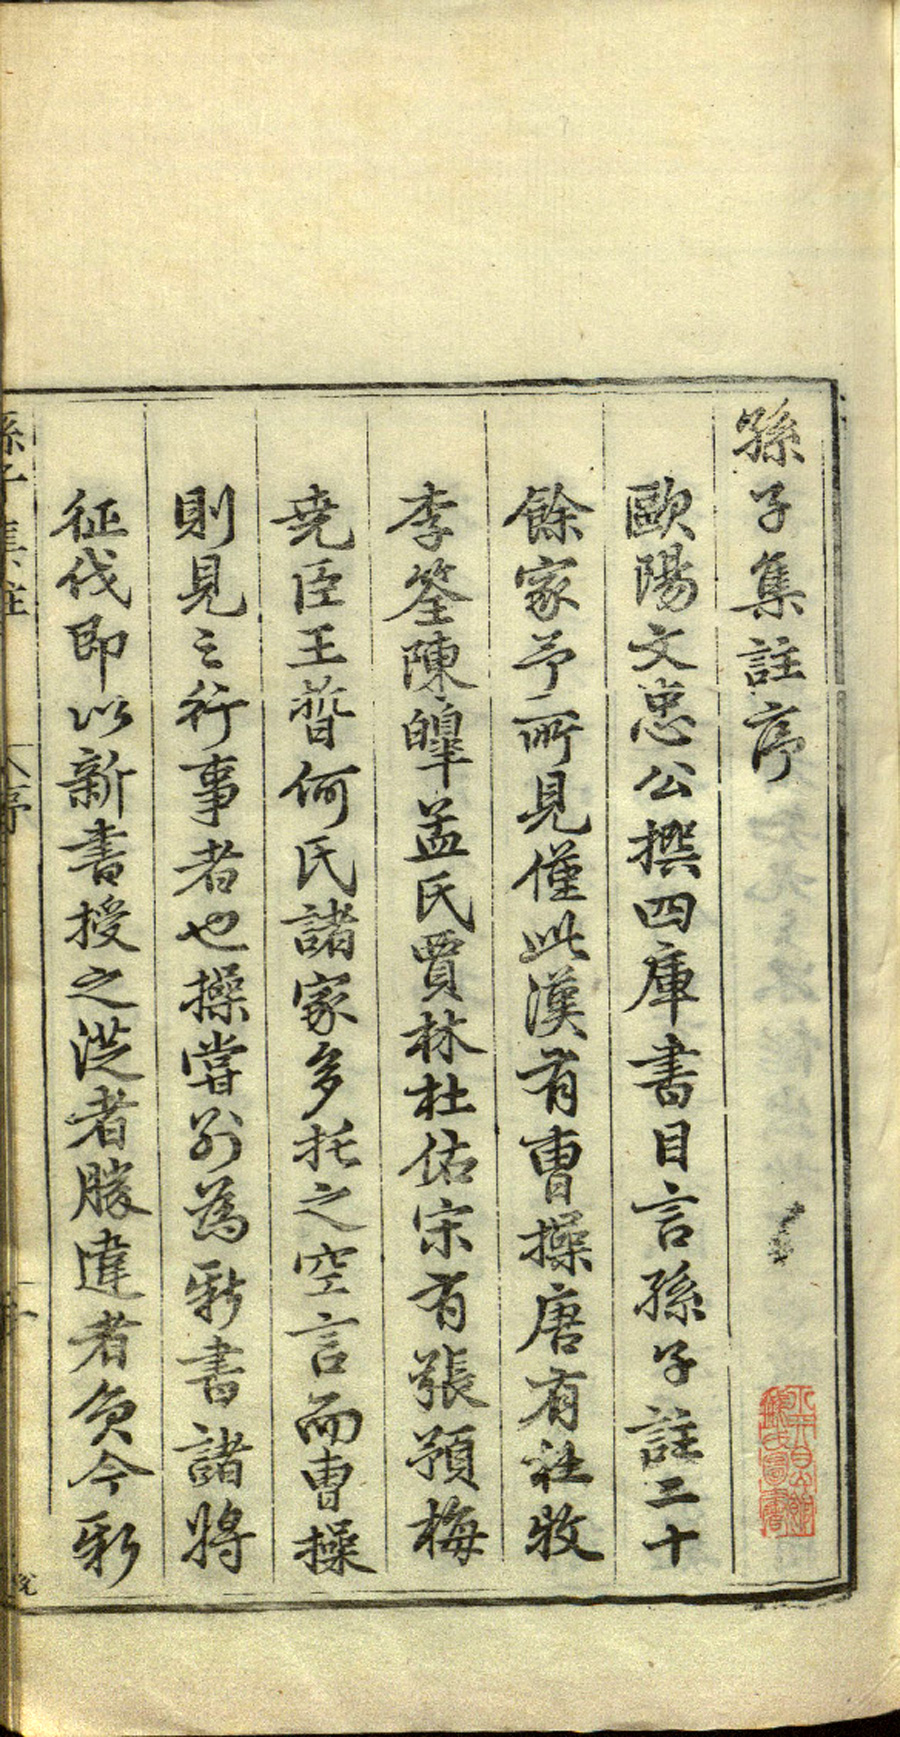 孫子集註序
歐陽文忠公撰四庫書目言孫子註二十
餘家予所見僅此漢有曹操唐有杜牧
李筌陳皥孟氏賈林杜佑宋有張預梅
堯臣王晳何氏諸家多托之空言而曹操
則見之行事者也操嘗別為新書諸將
征伐即以新書授之從者勝違者負今新
孫子集註
序